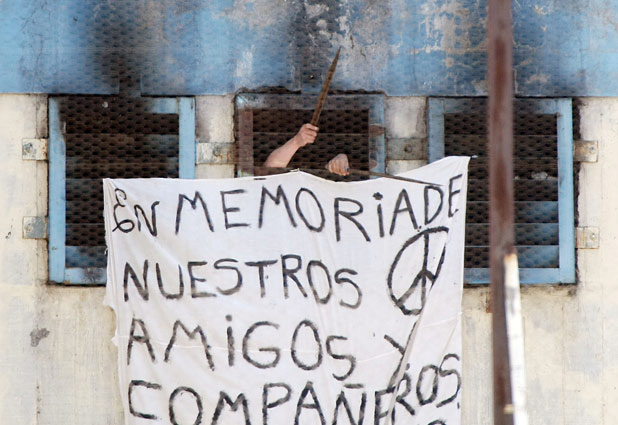 EN MEMORIA DE
NUESTROS
AMiGOS Y
COMPAÑEROS